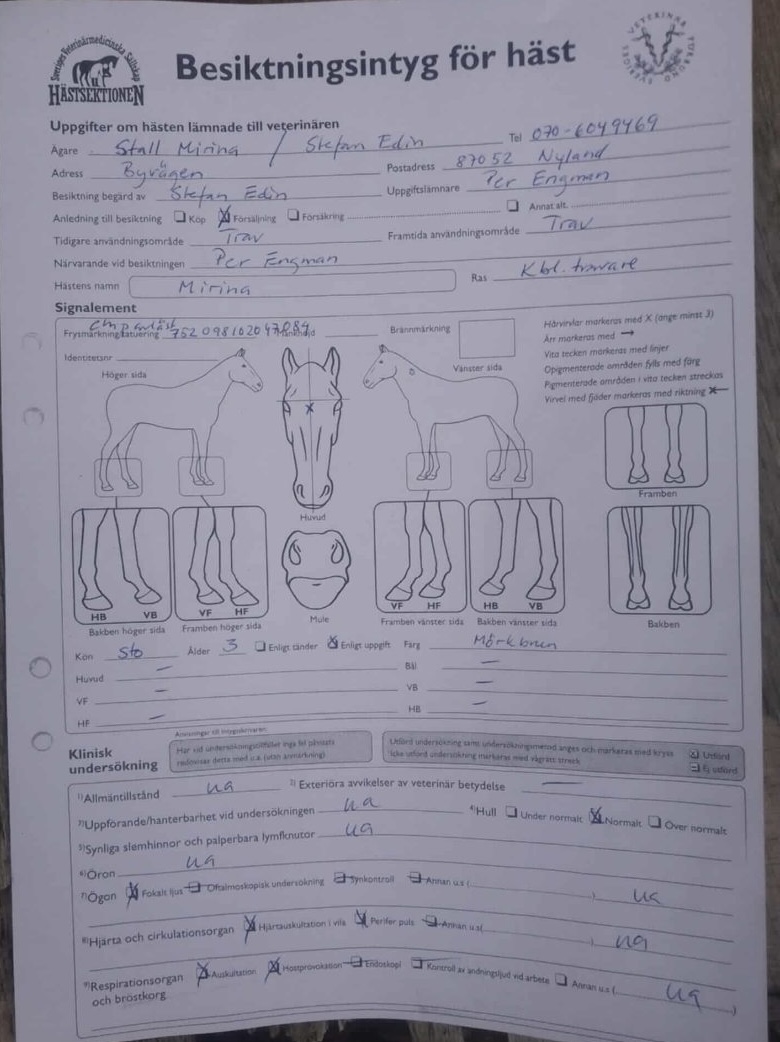 Sveriges Veterinärmedicinska Sällskap
HÄSTSEKTIONEN
Besiktningsintyg för häst
SVERIGES VETERINÄRFÖRBUND
Uppgifter om hästen lämnade till veterinären
Ägare Stall Miring / Stefan Edin Tel 070-6049469
Adress Byvägen Postadress 87052 Nyland
Besiktning begärd av Stefan Edin Uppgiftslämnare Per Engman
Anledning till besiktning Köp Försäljning Försäkring Annat alt.
Tidigare användningsområde Trav Framtida användningsområde Trav
Närvarande vid besiktningen Per Engman
Hästens namn Miring Ras Kbl. travare
Signalement
Frysmärkning/tatuering Brännmärkning
Identitetsnr
Hårvirvlar markeras med X (ange minst 3)
Ärr markeras med →
Vita tecken markeras med linjer
Opigmenterade områden fylls med färg
Pigmenterade områden i vita tecken streckas
Virvel med fjäder markeras med riktning
Höger sida Vänster sida
Huvud
Framben
HB VB VF HF VF HF HB VB
Bakben höger sida Framben höger sida Mule Framben vänster sida Bakben vänster sida Bakben
Kön Sto Ålder 3 Enligt tänder Enligt uppgift Färg Mörkbrun
Huvud — Bål —
VF — VB —
HF — HB —
Anvisningar till intygsskrivaren:
Klinisk undersökning
Har vid undersökningstillfället inga fel påvisats
redovisas detta med u.a. (utan anmärkning)
Utförd undersökning samt undersökningsmetod anges och markeras med kryss
Icke utförd undersökning markeras med vågrätt streck
Utförd
Ej utförd
1)Allmäntillstånd ua 2) Exteriöra avvikelser av veterinär betydelse —
3)Uppförande/hanterbarhet vid undersökningen ua 4)Hull Under normalt Normalt Över normalt
5)Synliga slemhinnor och palperbara lymfknutor ua
6)Öron ua
7)Ögon Fokalt ljus Oftalmoskopisk undersökning Synkontroll Annan u.s ( ) ua
8)Hjärta och cirkulationsorgan Hjärtauskultation i vila Perifer puls Annan u.s( ) ua
9)Respirationsorgan och bröstkorg Auskultation Hostprovokation Endoskopi Kontroll av andningsljud vid arbete Annan u.s ( ua )